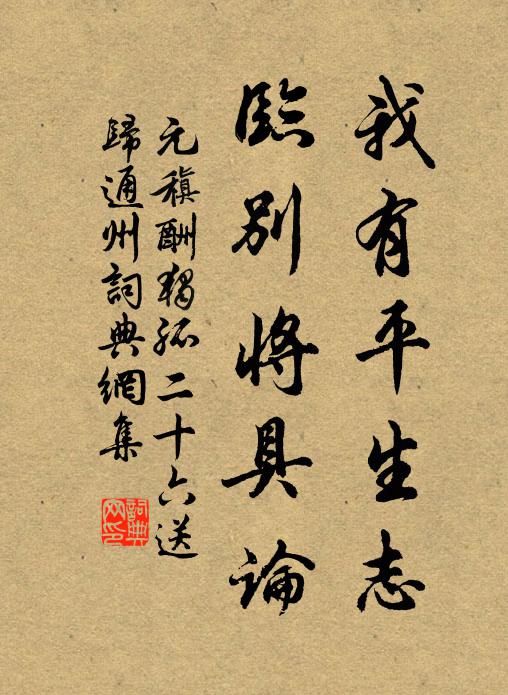 我有平生志
臨別將具論
元稹酬獨孤二十六送
歸通州詞典網集
詞典
网印